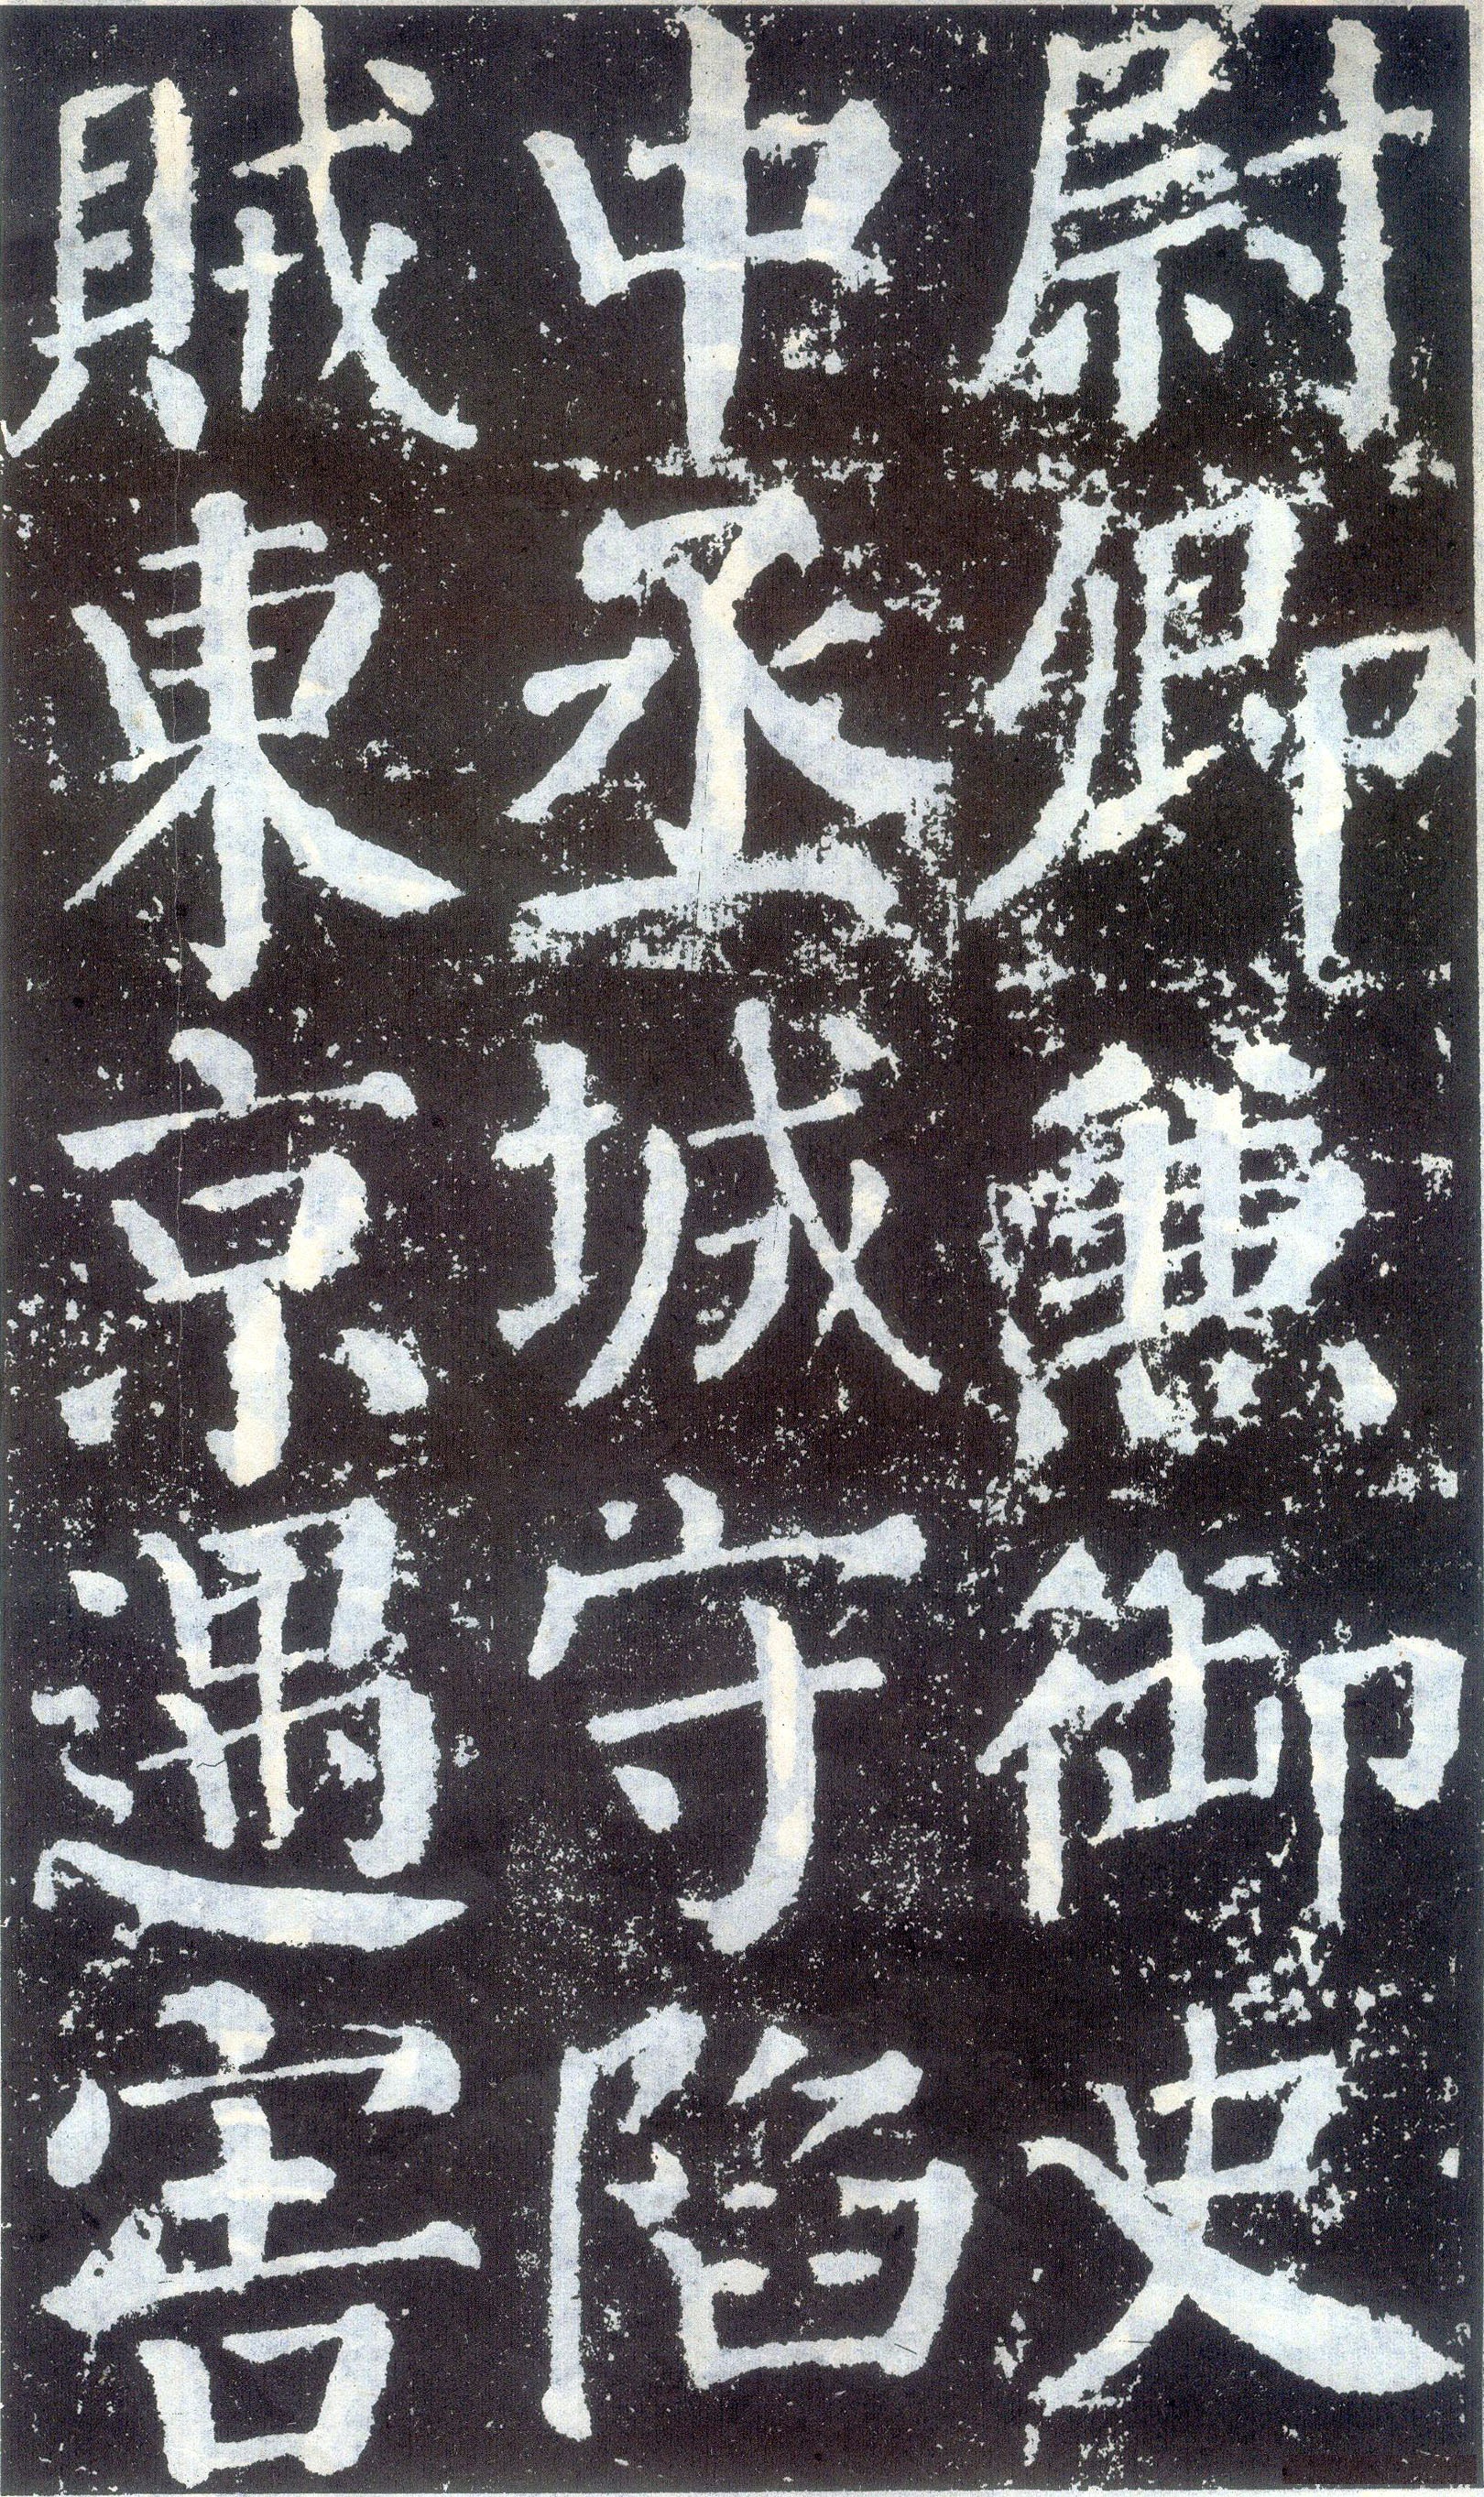 尉卿兼御史
中丞城守陷
賊東京遇害